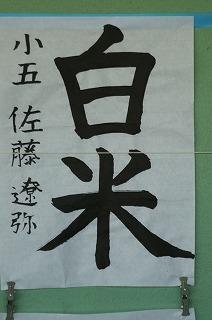 白米
小五 佐藤遼弥